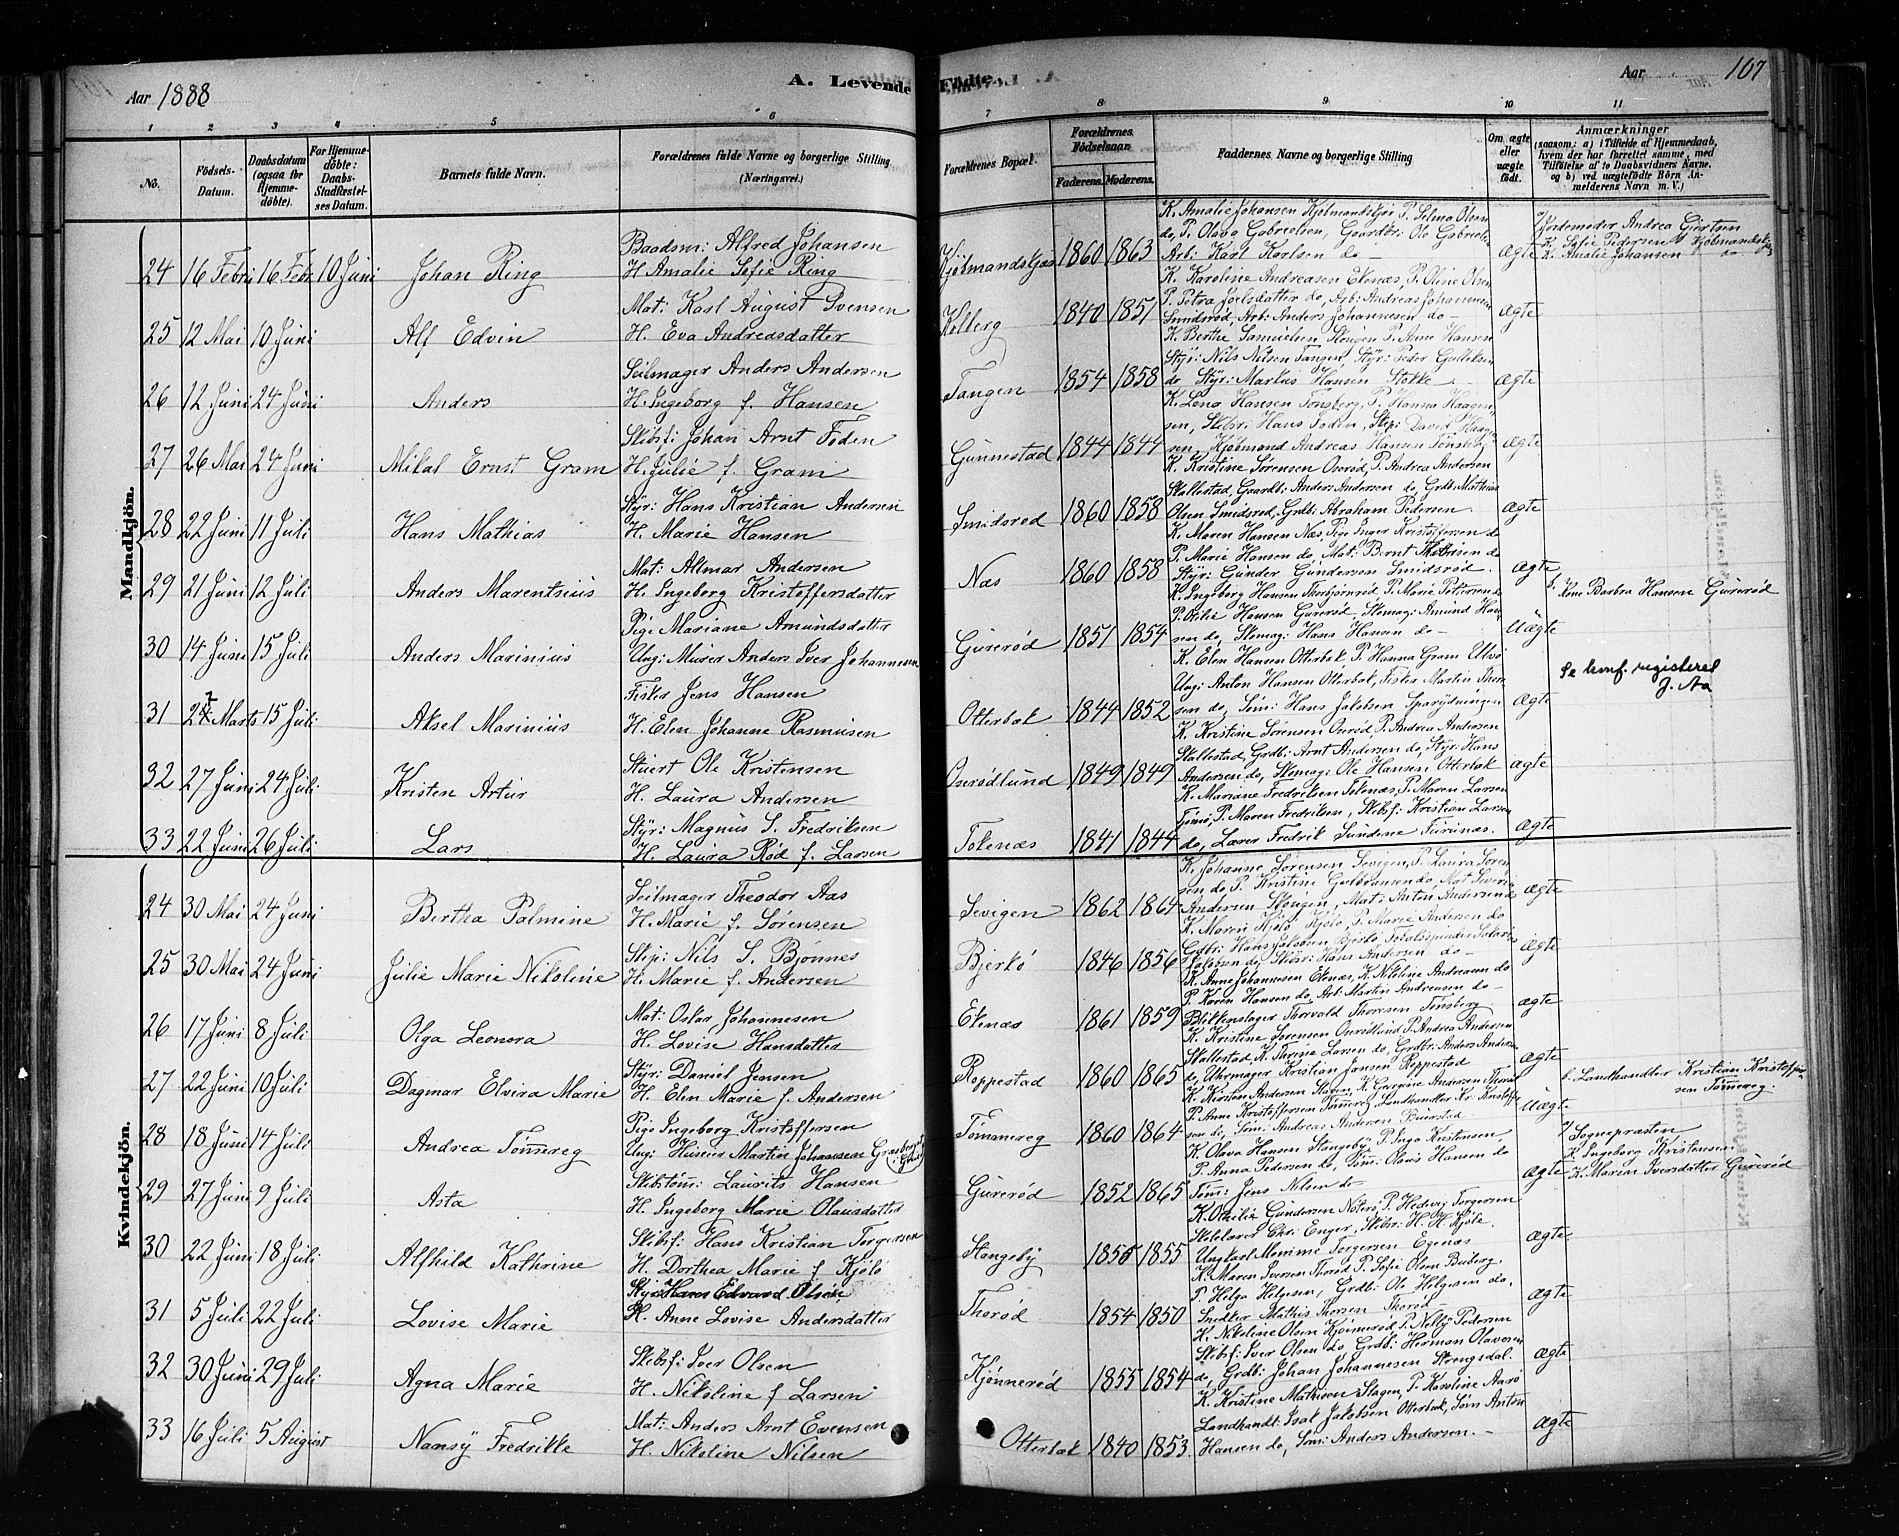 Aar 1888
A. Levende
Fødte.
Aar
107
1 2 3 4 5 6
7 8 9 10 11
No.
Fødsels-Datum.
Daabsdatum (ogsaa for Hjemme-døbte).
For Hjemme-døbte: Daabs-Stadfæstel-ses Datum.
Barnets fulde Navn.
Forældrenes fulde Navne og borgerlige Stilling (Næringsvei.)
Forældrenes Bopæl.
Forældrenes Fødselsaar.
Faderens. Moderens.
Faddernes Navne og borgerlige Stilling
Om ægte eller uægte født.
Anmærkninger
(saasom: a) i Tilfælde af Hjemmedaab, hvem der har forrettet samme, med Tilføielse af to Daabsvidners Navne, og b) ved uægtefødte Børn An-melderens Navn m. V.)
Mandkjön.
24 16 Febr 16 Febr 10 Juni Johan Ring
Baadsm: Alfred Johansen
H. Amalie Sofie Ring
Kjøbmandskjær 1860 1863
K. Amalie Johansen Kjøbmandskjær P. Selma Olsen
do, P. Olava Gabrielsen, Gaardbr: Ole Gabrielsen
Arb: Karl Karlsen do
Ægte
Jordemoder Andrea Gjertsen
K. Sofie Pedersen Kjøbmandskjær
K. Amalie Johansen do
25 12 Mai 10 Juni Alf Edvin
Mat: Karl August Svensen
H. Eva Andreasdatter
Kolberg 1840 1851
K. Karoline Andreasen Ekenæs, P. Oline Olsen
P. Petra Joelsdatter do, Arb: Andreas Johannesen
Smidsrød, Arb: Anders Johannesen do
Ægte
26 12 Juni 24 Juni Anders
Seilmager Anders Andersen
H. Ingeborg f. Hansen
Tangen 1854 1858
K. Berthe Samuelsen Skougen P. Anne Hansen
Styr: Nils Nilsen Tangen, Styr: Peder Gulliksen
do, Styr: Markus Hansen Stokke
Ægte
27 26 Mai 24 Juni Mikal Ernst Gram
Skibsf: Johan Arnt Foden
H. Julie f. Gram
Gunnestad 1844 1844
K. Lena Hansen Tønsberg, P. Hanna Haagen-
sen, Skibr: Hans Foden, Skip: David Haagen-
sen, Kjøbmand Andreas Hansen Tønsberg
Ægte
28 22 Juni 11 Juli Hans Mathias
Styr: Hans Kristian Andersen
H. Marie Hansen
Smidsrød 1860 1858
K. Kristine Sørensen Oserød, P. Andrea Andersen
Skallestad, Gaardb: Anders Andersen do, Grdb: Mathias
Olsen Smidsrød, Grdb: Abraham Pedersen
Ægte
29 21 Juni 12 Juli Anders Marentsius
Mat: Allmar Andersen
H. Ingeborg Kristoffersdatter
Næs 1860 1858
K. Maren Hansen Næs, Pige Inger Kristoffersen do
P. Marie Hansen do, Mat: Bernt Mathisen do
Styr: Gunder Gundersen Smidsrød.
Ægte
30 14 Juni 15 Juli Anders Marinius
Pige Mariane Amundsdatter
Ung: Murer Anders Iver Johannesen
Gurerød 1851 1854
K. Ingeborg Hansen Thorbjørnrød, P. Marie Petersen do
P. Otilie Hansen Gurerød, Skomag: Amund Han-
sen do, Skomag: Hans Hansen do
Uægte
b. Kone Barbra Hansen Gurerød
31 27 Marts 15 Juli Aksel Marinius
Fisker Jens Hansen
H. Elen Johanne Rasmusen
Otterbæk 1844 1852
K. Elen Hansen Otterbæk, P. Hanna Gram Ulvø
Ung: Anton Hansen Otterbæk, Fisker Martin Thor-
sen do, Søm: Hans Jakobsen
Ægte
Se konf. registeret
J. Aa
32 27 Juni 24 Juli Kristen Artur
Stuert Ole Kristensen
H. Laura Andersen
Oserødlund 1849 1849
K. Kristine Sørensen Oserød, P. Andrea Andersen
Skallestad, Grdb: Arnt Andersen do, Styr: Hans
Andersen do, Skomag: Ole Hansen Otterbæk
Ægte
33 22 Juni 26 Juli Lars
Styr: Magnus S. Fredriksen
H. Laura Rød f. Larsen
Tokenæs 1841 1844
K. Mariane Fredriksen Tokenæs, P. Maren Larsen
Tjømø, P. Maren Fredriksen, Skibsf: Kristian Larsen
do, Lærer Fredrik Sundene Furunæs.
Ægte
Kvindekjön.
24 30 Mai 24 Juni Bertha Palmine
Seilmager Theodor Aas
H. Marie f. Sørensen
Sevigen 1862 1864
K. Johanne Sørensen Sevigen, P. Laura Søren-
sen do, P. Kristine Gulbransen do, Mat: Severin
Andersen Skougen, Mat: Anton Andersen do
Ægte
25 30 Mai 24 Juni Julie Marie Nikoline
Skip: Nils S. Bjønnes
H. Marie f. Andersen
Bjerkø 1846 1856
K. Maren Kjølø Kjølø, P. Marie Andersen do
Grdbr: Hans Jakobsen Bjerkø,
Jakobsen do, Skibr: Hans Andersen do
Ægte
26 17 Juni 8 Juli Olga Leonora
Mat: Oskar Johannesen
H. Lovise Hansdatter
Ekenæs 1861 1859
K. Anne Johannesen Ekenæs, K. Nikoline Andreasen do
P. Karen Hansen do, Arb: Martin Andreasen do
Blikkenslager Thorvald Thoresen Tønsberg
Ægte
27 22 Juni 10 Juli Dagmar Elvira Marie
Styr: Daniel Jensen
H. Elen Marie f. Andersen
Roppestad 1860 1865
K. Kristine Sørensen Oserødlund P. Andrea Andersen
Skallestad, K. Thrine Larsen do, Grdbr: Anders Andersen
do, Uhrmager Kristian Jansen Roppestad
Ægte
28 18 Juni 14 Juli Andrea Tømmereg
Pige Ingeborg Kristoffersen
Ung: Huseier Martin Johansen
Tømmereg 1860 1864
K. Kirsten Andersen Haven, K. Gurgine Andersen
P. Anne Kristoffersen Tømmereg, Landhandler Kr: Kristoffer-
sen do, Søm: Andreas Andersen Buerstad
Uægte
b. Landhandler Kristian Kristoffer-
sen Tømmereg.
29 27 Juni 9 Juli Asta
Skibstøm: Laurits Hansen
H. Ingeborg Marie Olausdatter
Gurerød 1852 1865
K. Olava Hansen Stangeby P. Inga Kristensen,
P. Anna Pedersen do, Tøm: Olaus Hansen do
Tøm: Jens Nilsen do
Ægte
Sognepræsten
K. Ingeborg Kristensen
K. Maren Iversdatter Gurerød
30 22 Juni 18 Juli Alfhild Kathrine
Skibsf: Hans Kristian Torgersen
H. Dorthea Marie f Kjølø
Stangeby 1855 1855
K. Othilie Gundersen Nøterø, P. Hedevig Torgersen
Skolelærer Chr: Enger, Skibr: H. H. Kjølø.
Ungkarl Momme Torgersen Egenæs
Ægte
31 5 Juli 22 Juli Lovise Marie
Styr: Hans Edvard Olsen,
H. Anne Lovise Andersdatter
Thorød 1854 1850
K. Maren Iversen Thorød P. Sofie Olsen Buberg,
P. Helga Helgesen, Grdb: Ole Helgesen do,
Snedker Mathis Thorsen Thorød
Ægte
32 30 Juni 29 Juli Agna Marie
Skibsf: Iver Olsen
H. Nikoline f Larsen
Kjønnerød 1855 1854
K. Nikoline Olsen Kjønnerød P. Nelly Pedersen
Skibsf: Iver Olsen do, Grdb: Herman Olavesen
do, Grdb: Johan Johannesen Strengsdal.
Ægte
33 16 Juli 5 August Nansy Fredrikke
Mat: Anders Arnt Evensen
H. Nikoline Nilsen
Otterbæk 1840 1853.
K. Kristine Mathisen Hagen, P. Karoline Aarø
Landhandl: Isak Jakobsen Otterbæk, Søm Anton
Hansen do, Søm: Anders Andersen.
Ægte